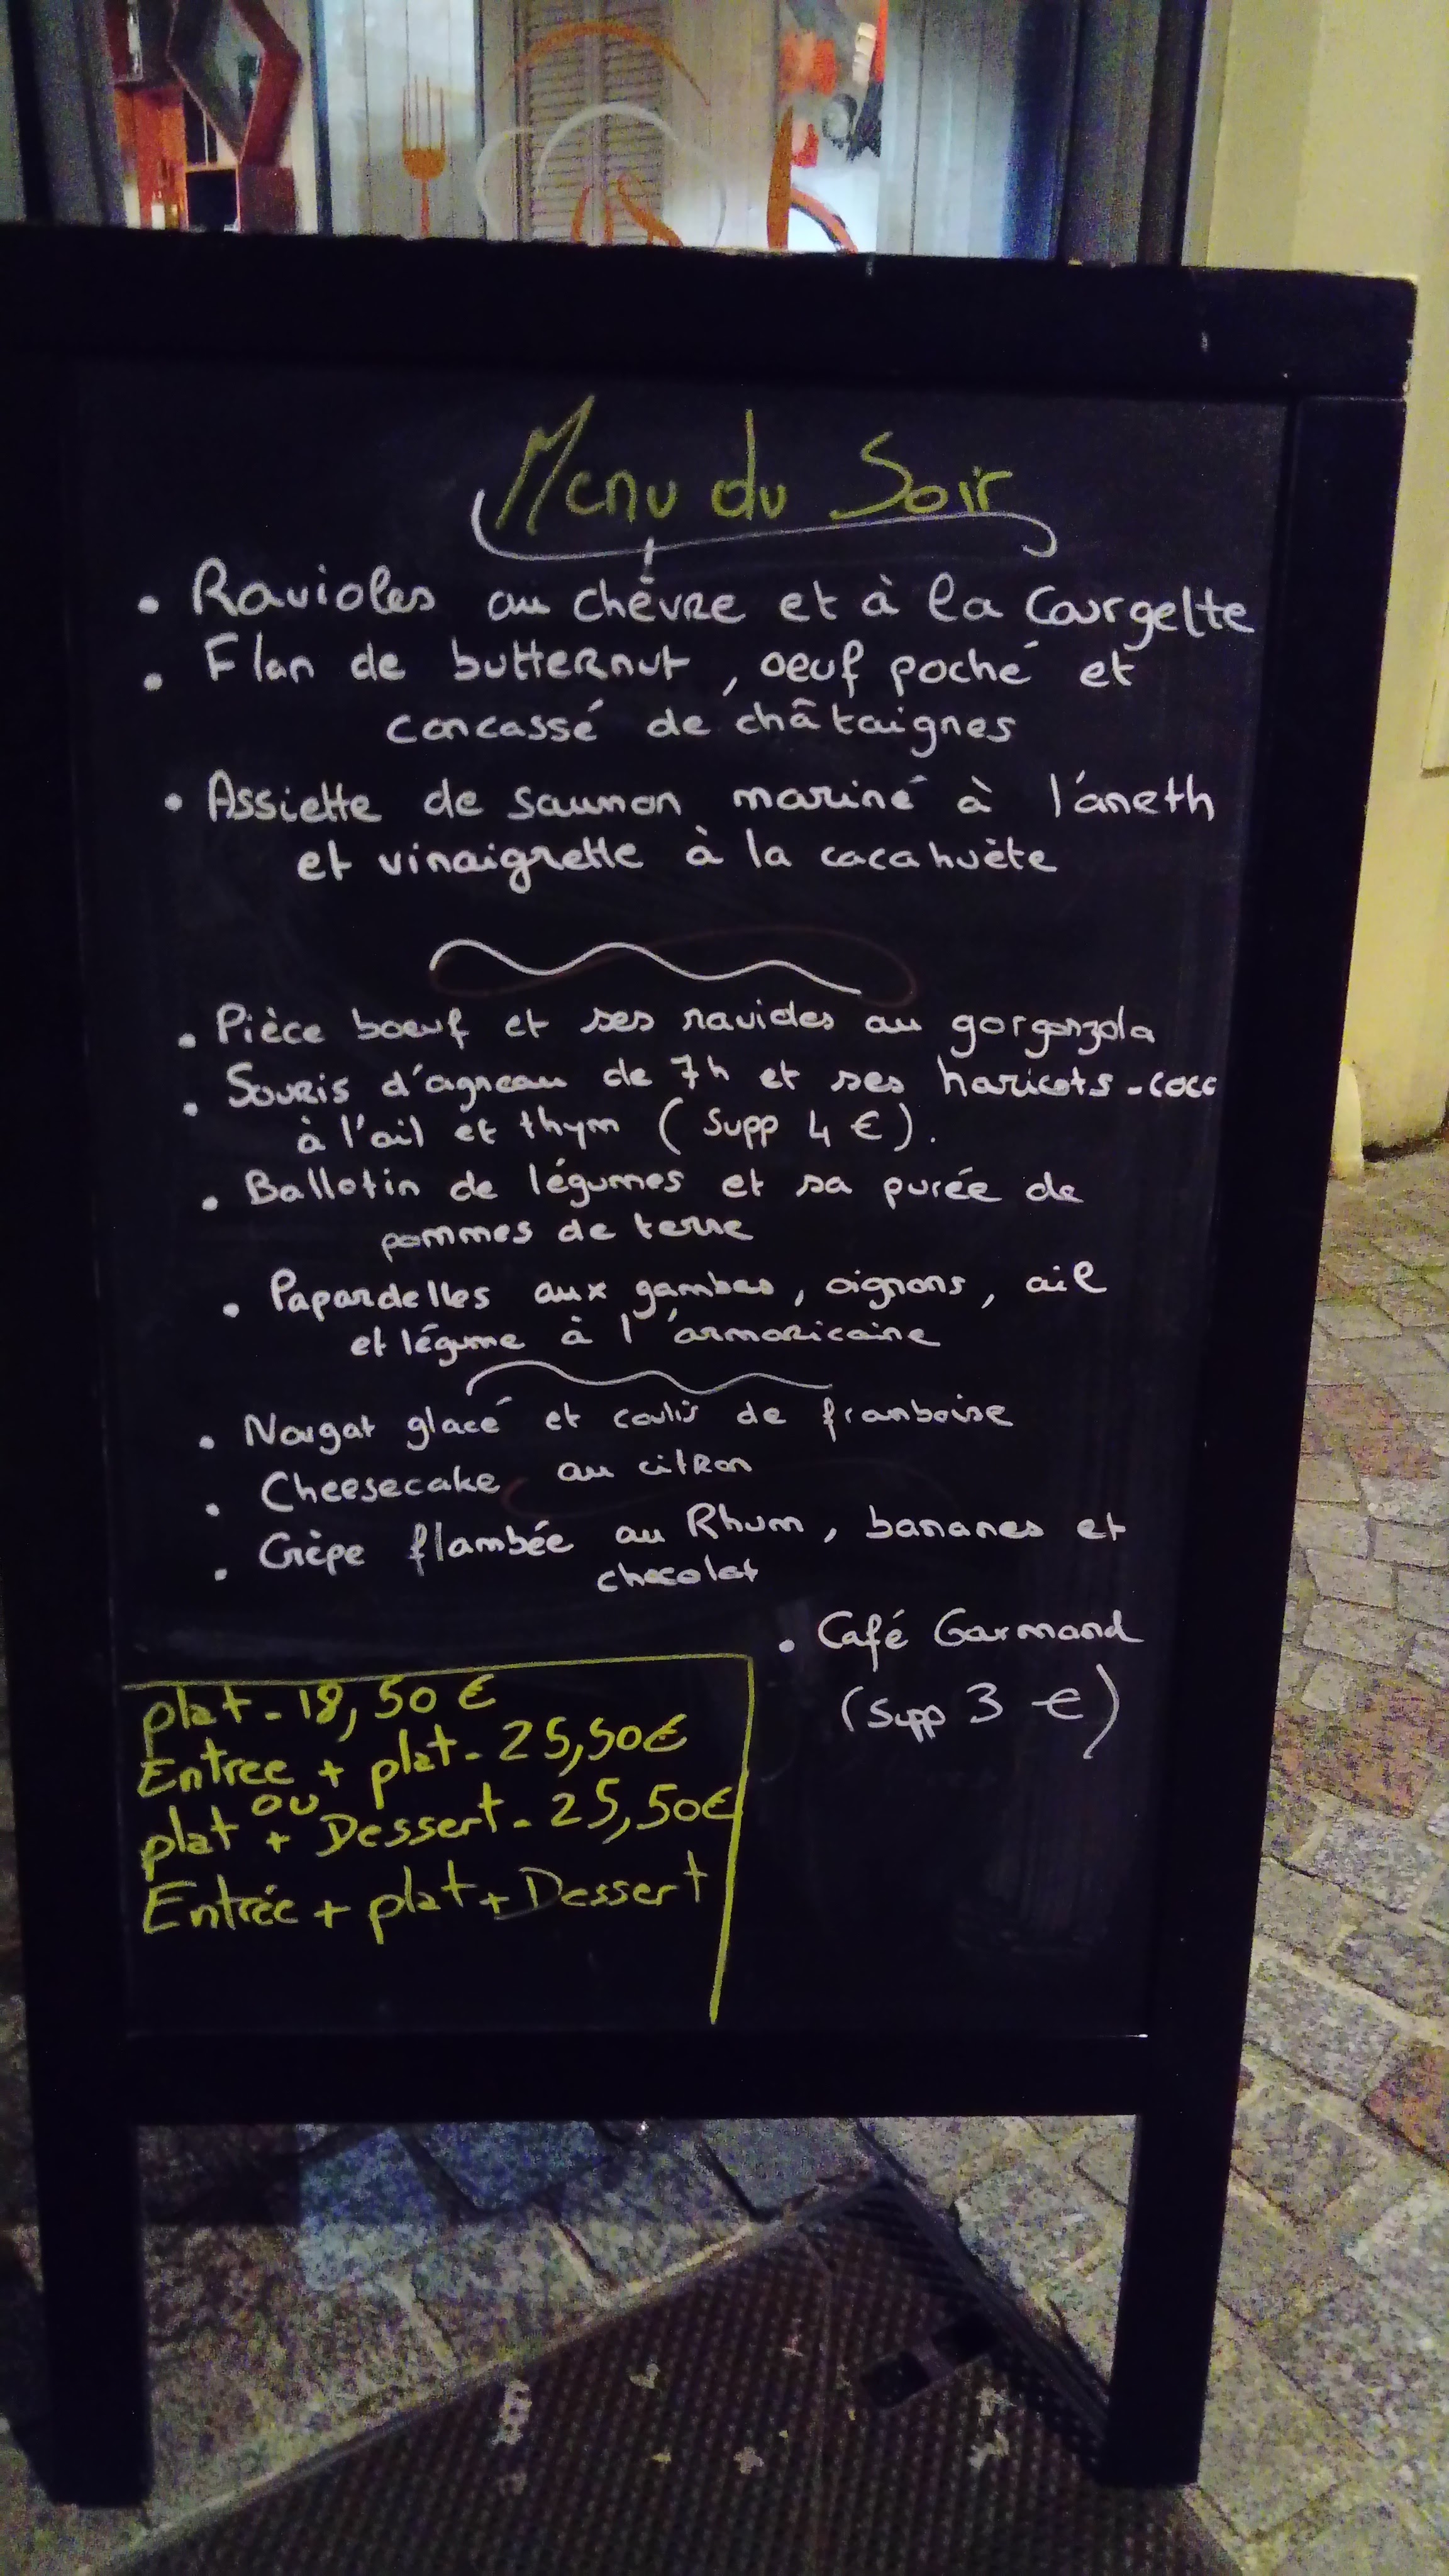 Menu du Soir
• Ravioles au chèvre et à la Courgette
• Flan de butternut, oeuf poché et
concassé de châtaignes
• Assiette de saumon mariné à l'aneth
et vinaigrette à la cacahuète
• Pièce boeuf et ses ravioles au gorgonzola
• Souris d'agneau de 7h et ses haricots-coco
à l'ail et thym (Supp 4 €).
• Ballotin de légumes et sa purée de
pommes de terre
• Papardelles aux gambas, oignons, ail
et légume à l'armoricaine
• Nougat glacé et coulis de framboise
• Cheesecake au citron
• Crèpe flambée au Rhum, bananes et
chocolat
• Café Gourmand
(Supp 3 €)
plat - 18,50 €
Entree + plat - 25,50€
ou
plat + Dessert - 25,50€
Entrée + plat + Dessert